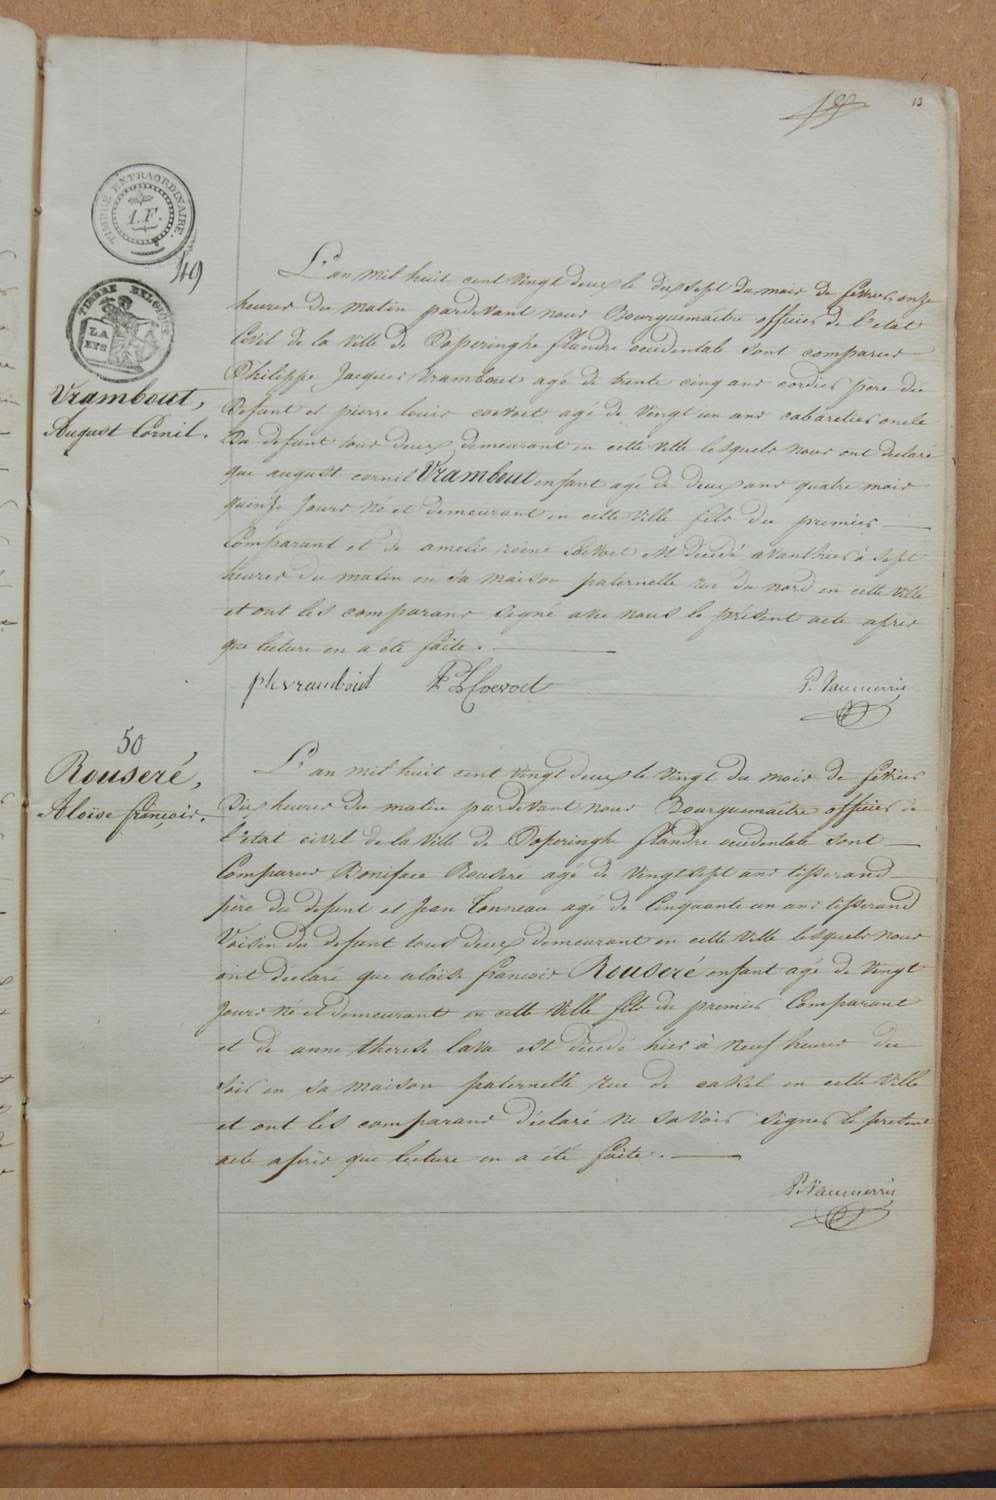 13
TIMBRE EXTRAORDINAIRE.
1.F.
49
TIMBRE BELGIQUE
Vrambout,
August Cornil.
L'an mil huit cent vingt deux le dix sept du mois de fevrier onze
heures du matin pardevant nous Bourguemaitre officier de l'etat
Civil de la ville de Poperinghe flandre occidentale sont comparus
Philippe Jacques Vrambout agé de trente cinq ans cordier père du
Defunt et pierre louis coevoet agé de vingt un ans cabaretier oncle
Du defunt tous deux demeurant en cette ville lesquels nous ont declaré
que august cornil Vrambout enfant agé de deux ans quatre mois
quinze Jours né et demeurant en cette ville fils du premier
Comparant et de amelie reine Coevoet est decedé avanthier à sept
heures du matin en sa maison paternelle rue du nord en cette ville
et ont les comparans signé avec nous le présent acte après
que lecture en a été faite.
ph vrambout PL Coevoet P. Vanmerris
50
Rouseré,
Aloïse françois.
L'an mil huit cent vingt deux le vingt du mois de fevrier
Dix heures du matin pardevant nous Bourguemaitre officier de
l'etat civil de la ville de Poperinghe flandre occidentale sont
Comparus Boniface Rouseré agé de vingt sept ans tisserand
père du defunt et Jean Tonneau agé de Cinquante un ans tisserand
Voisin du defunt tous deux demeurant en cette ville lesquels nous
ont declaré que aloïse françois Rouseré enfant agé de vingt
Jours né et demeurant en cette ville fils du premier Comparant
et de anne therese Cava est decedé hier à neuf heures du
soir en sa maison paternelle rue de cassel en cette ville
et ont les comparans déclaré ne savoir signer le present
acte après que lecture en a été faite.
P. Vanmerris